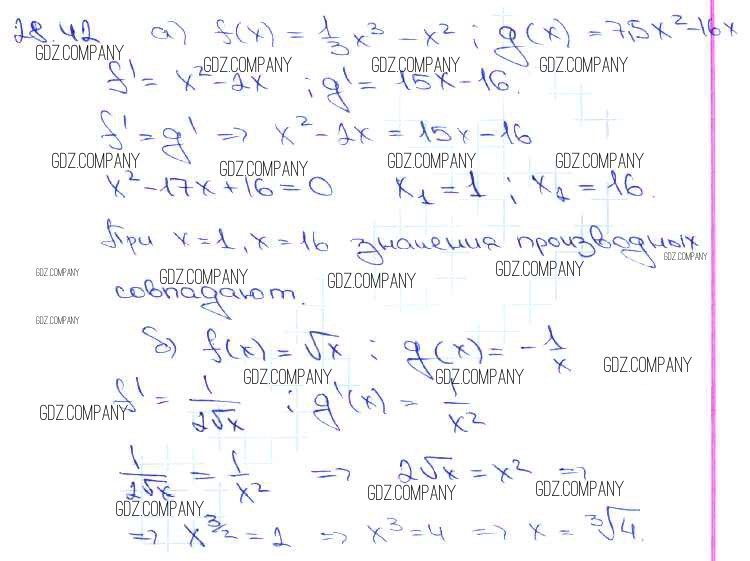 28.42 а) f(x) = 1/3 x³ - x² ; g(x) = 7,5x² - 16x
GDZ.COMPANY GDZ.COMPANY GDZ.COMPANY GDZ.COMPANY
f' = x² - 2x ; g' = 15x - 16.
f' = g' => x² - 2x = 15x - 16
GDZ.COMPANY GDZ.COMPANY GDZ.COMPANY GDZ.COMPANY
x² - 17x + 16 = 0 x₁ = 1 ; x₂ = 16.
При x = 1, x = 16 значения производных
GDZ.COMPANY GDZ.COMPANY GDZ.COMPANY GDZ.COMPANY GDZ.COMPANY
совпадают.
GDZ.COMPANY
б) f(x) = √x ; g(x) = - 1/x
GDZ.COMPANY GDZ.COMPANY GDZ.COMPANY
f' = 1/(2√x) ; g'(x) = 1/x²
GDZ.COMPANY
1/(2√x) = 1/x² => 2√x = x² =>
GDZ.COMPANY GDZ.COMPANY GDZ.COMPANY
=> x^(3/2) = 2 => x³ = 4 => x = ³√4.